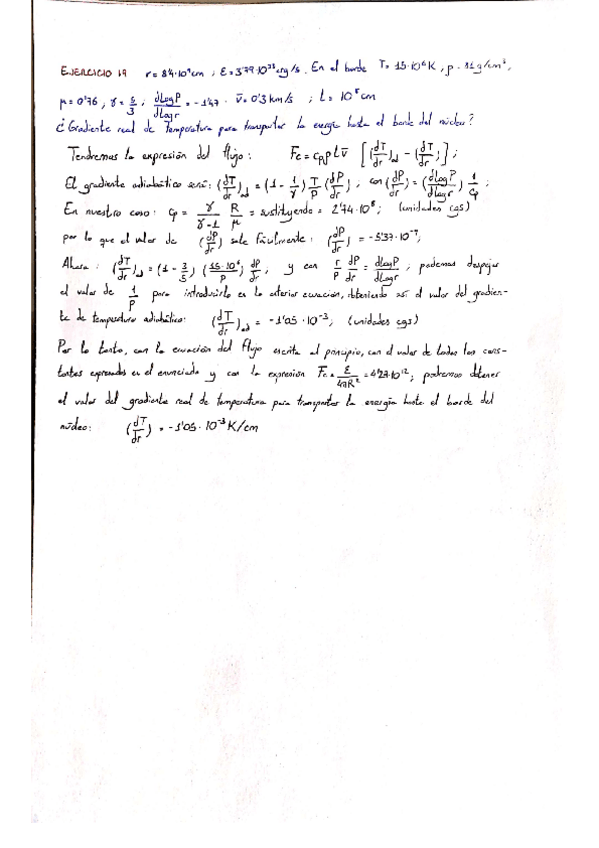 EJERCICIO 19 r = 8'4·10⁹ cm ; ε = 3'79·10³³ erg/s . En el borde T = 15·10⁶ K , ρ = 11 g/cm³ ,
μ = 0'76 , γ = 5/3 ; dLogP/dLogr = -1'47 · v̄ = 0'3 km/s ; l = 10⁸ cm
¿Gradiente real de Temperatura para transportar la energía hasta el borde del núcleo?
Tendremos la expresión del flujo: Fc = cp ρ l v̄ [ (dT/dr)ad - (dT/dr) ] ;
El gradiente adiabático será: (dT/dr)ad = (1 - 1/γ) T/P (dP/dr) ; con (dP/dr) = (dLogP/dLogr) 1/cp ;
En nuestro caso: cp = γ/γ-1 R/μ = sustituyendo = 2'74·10⁸ ; (unidades cgs)
por lo que el valor de (dP/dr) sale fácilmente: (dP/dr) = -5'37·10⁻⁹ ;
Ahora: (dT/dr)ad = (1 - 3/5) (15·10⁶/P) dP/dr ; y con r/P dP/dr = dLogP/dLogr ; podemos despejar
el valor de 1/P para introducirlo en la anterior ecuación, obteniendo así el valor del gradien-
te de temperatura adiabático: (dT/dr)ad = -1'05·10⁻³ ; (unidades cgs)
Por lo tanto, con la ecuación del flujo escrita al principio, con el valor de todas las cons-
tantes expresadas en el enunciado y con la expresión Fc = ε/4πR² = 4'27·10¹² ; podremos obtener
el valor del gradiente real de temperatura para transportar la energía hasta el borde del
núcleo: (dT/dr) = -1'05·10⁻³ K/cm